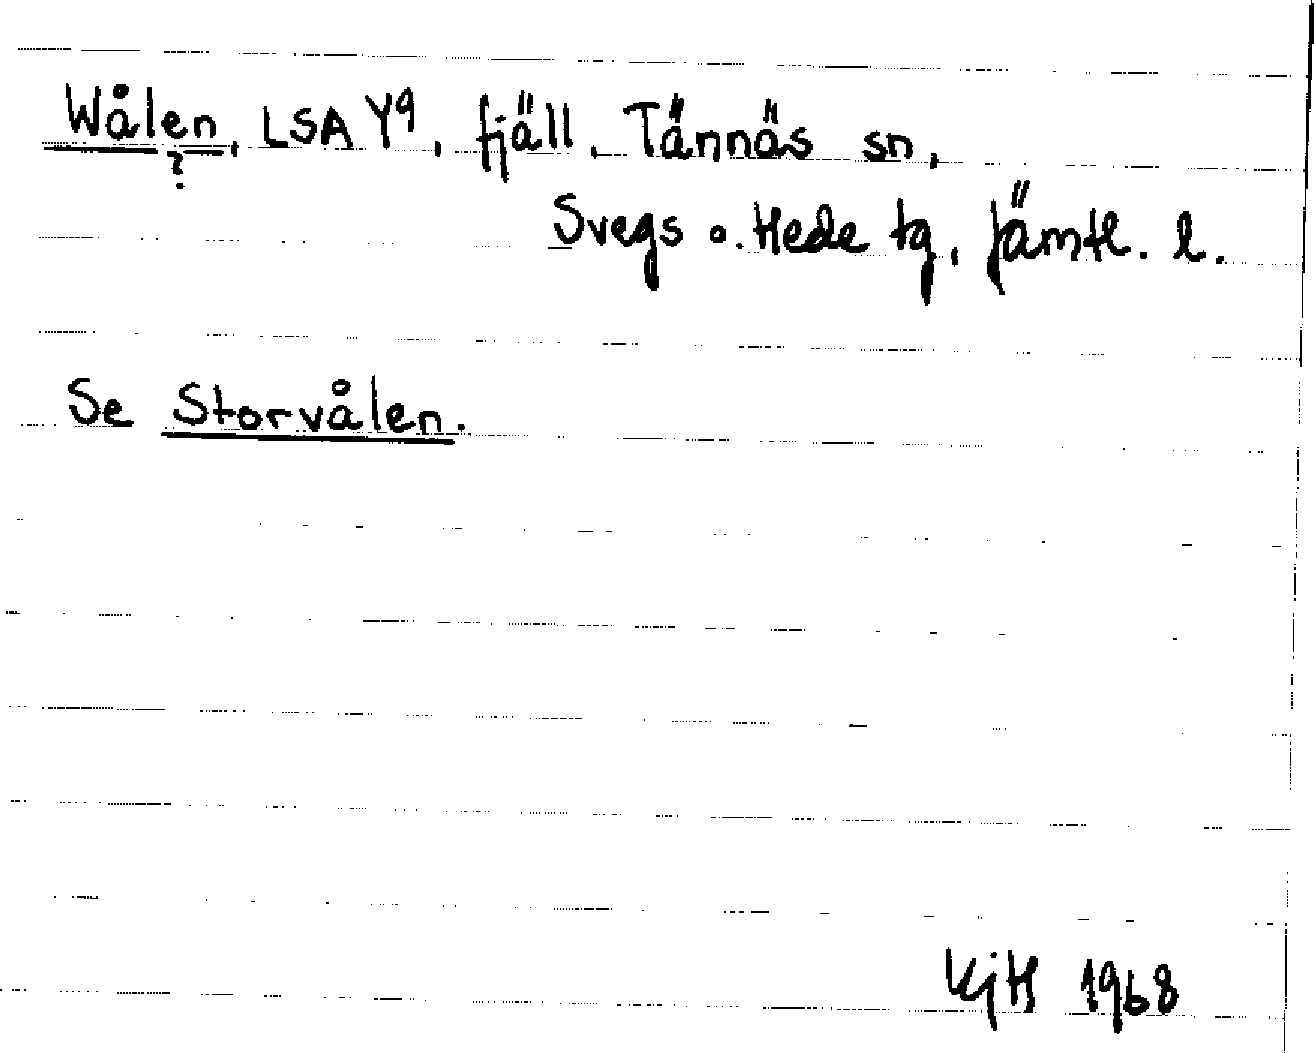 Wålen, LSA Y9, fjäll, Tännäs sn,
?
Svegs o. Hede tg, Jämtl. l.
Se Storvålen.
KjH 1968